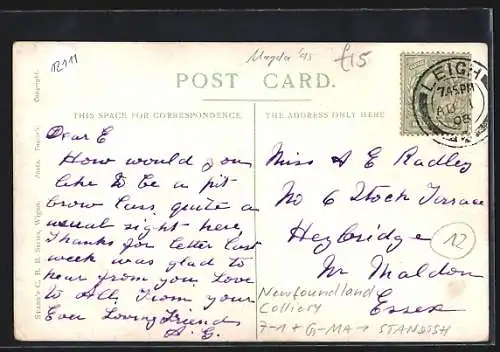 12111
Magda '95
£15
POST CARD.
THIS SPACE FOR CORRESPONDENCE.
THE ADDRESS ONLY HERE
Copyright.
Photo.
STARR'S C. B. B. SERIES, WIGAN.
LEIGH
7.45 PM
Dear E
How would you
like to be a pit-
brow lass, quite a
usual sight here,
Thanks for letter last
week was glad to
hear from you, Love
to All, From your
Ever Loving Friends
A. G.
Miss A E Radley
No 6 Stock Terrace
Heybridge
Nr Maldon
Essex
12
Newfoundland
Colliery
7-1 + G-MA → STANDISH